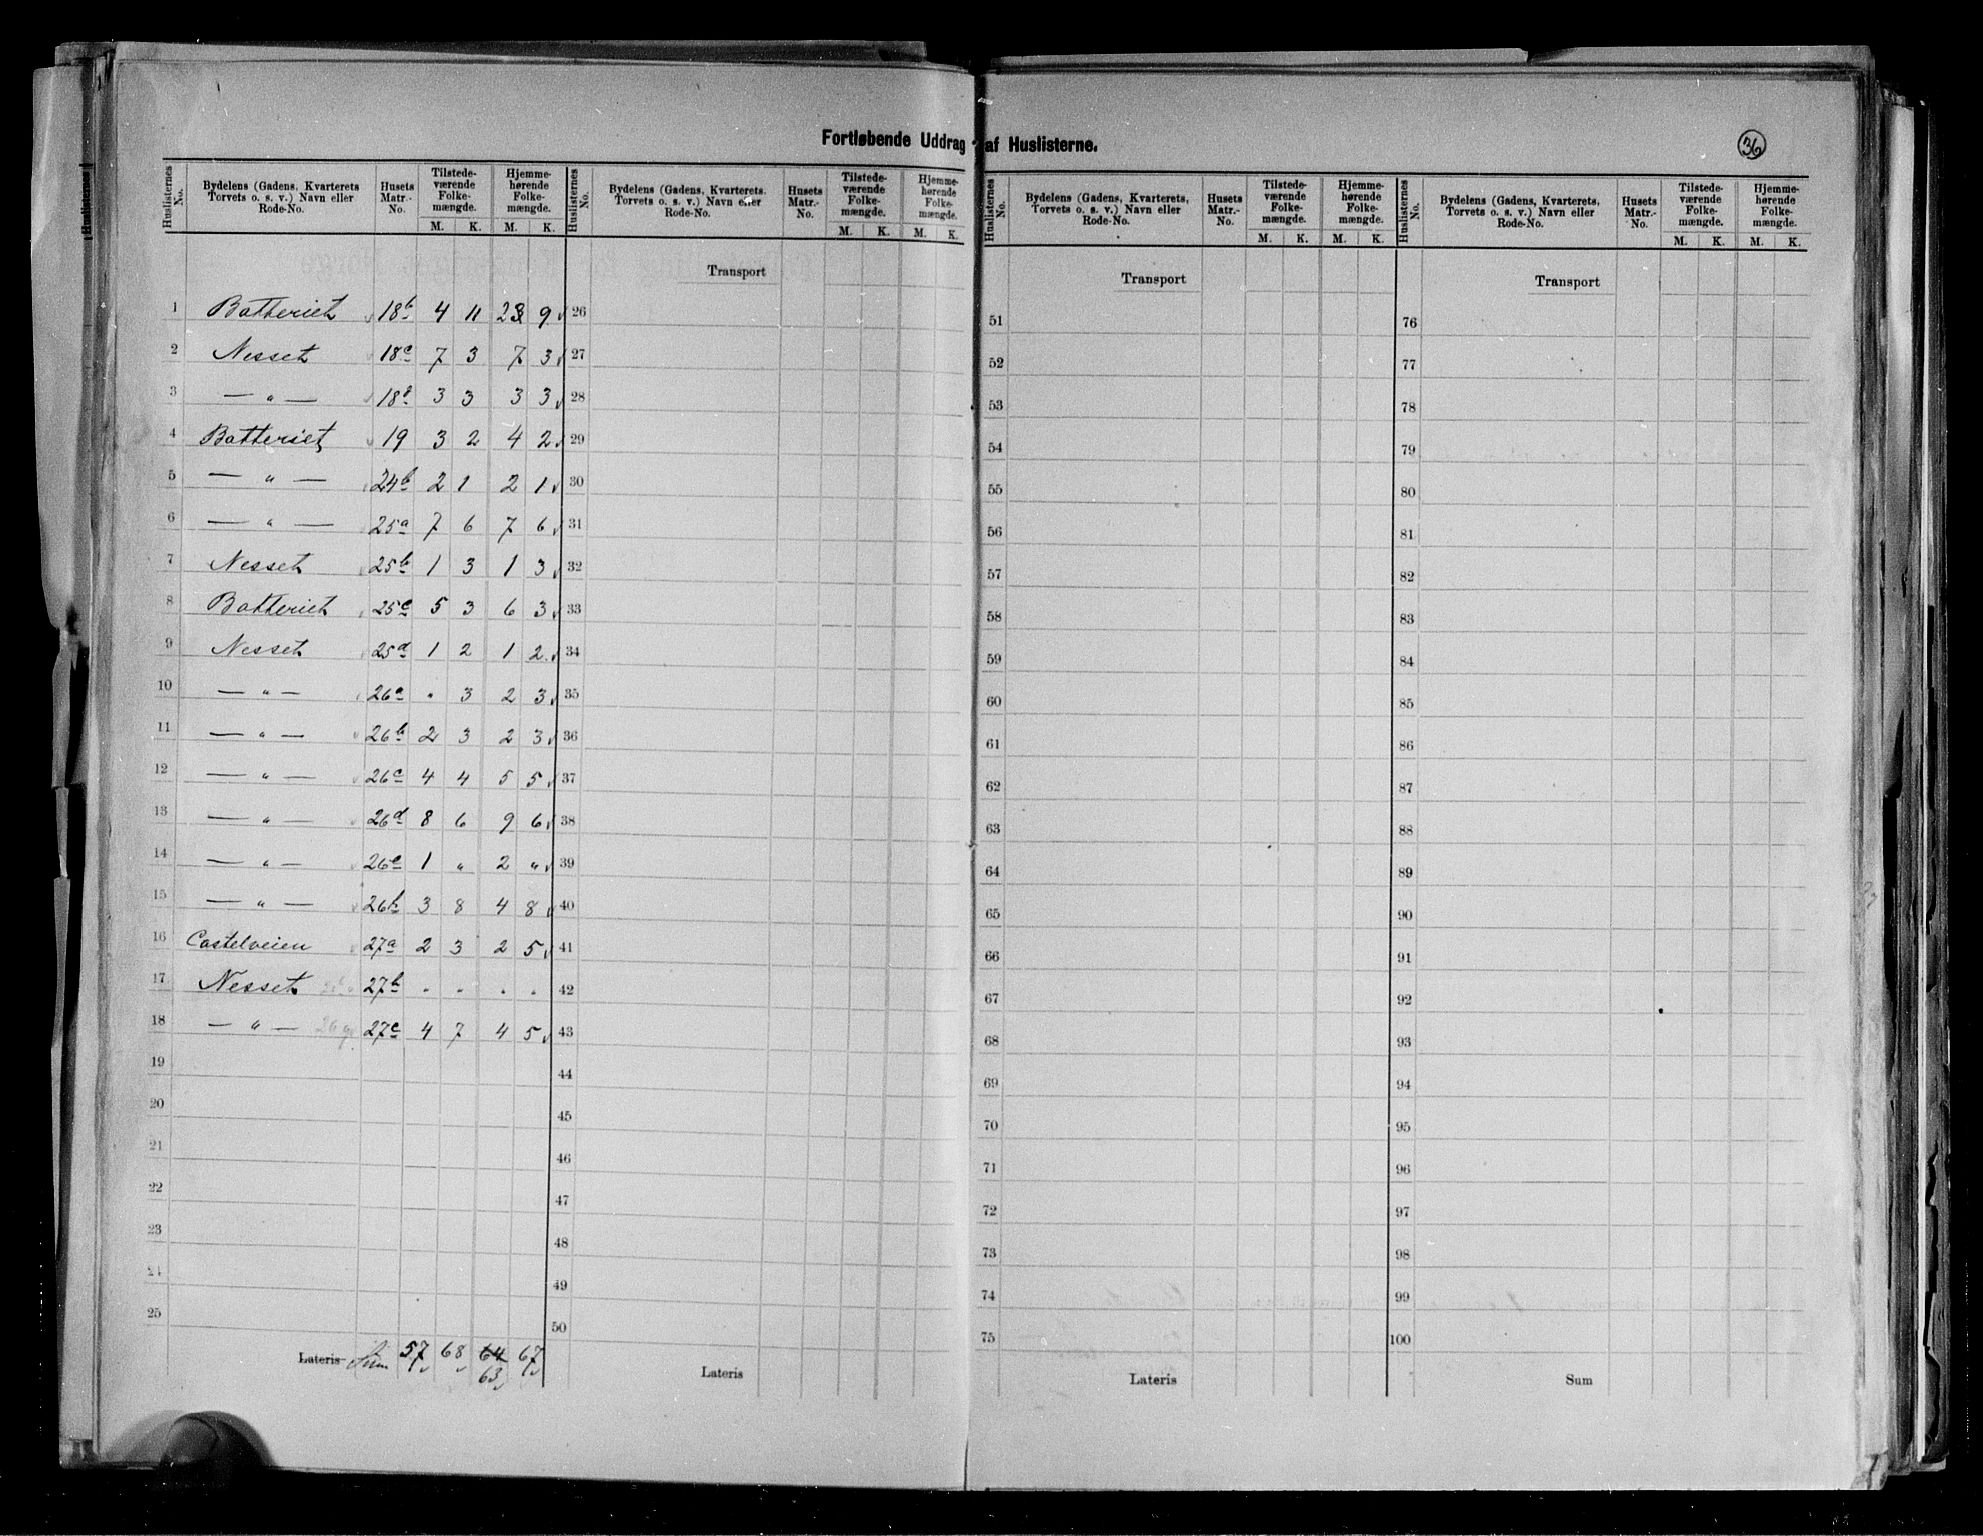 Fortløbende Uddrag af Huslisterne.
36
Huslisternes No. | Bydelens (Gadens, Kvarterets Torvets o. s. v.) Navn eller Rode-No. | Husets Matr.-No. | Tilstedeværende Folkemængde. M. K. | Hjemmehørende Folkemængde. M. K.
1 Batteriet 18b 4 11 2 9
2 Nesset 18c 7 3 7 3
3 — " — 18d 3 3 3 3
4 Batteriet 19 3 2 4 2
5 — " — 24b 2 1 2 1
6 — " — 25a 7 6 7 6
7 Nesset 25b 1 3 1 3
8 Batteriet 25c 5 3 6 3
9 Nesset 25d 1 2 1 2
10 — " — 26a " 3 2 3
11 — " — 26b 2 3 2 3
12 — " — 26c 4 4 5 5
13 — " — 26d 8 6 9 6
14 — " — 26e 1 " 2 "
15 — " — 26h 3 8 4 8
16 Castelveien 27a 2 3 2 5
17 Nesset 27b " " " "
18 — " — 27c 4 7 4 5
19
20
21
22
23
24
25
Lateris Sum 57 68 64 67
63
Huslisternes No. | Bydelens (Gadens, Kvarterets, Torvets o. s. v.) Navn eller Rode-No. | Husets Matr.-No. | Tilstedeværende Folkemængde. M. K. | Hjemmehørende Folkemængde. M. K.
Transport
26
27
28
29
30
31
32
33
34
35
36
37
38
39
40
41
42
43
44
45
46
47
48
49
50
Lateris
Huslisternes No. | Bydelens (Gadens, Kvarterets, Torvets o. s. v.) Navn eller Rode-No. | Husets Matr.-No. | Tilstedeværende Folkemængde. M. K. | Hjemmehørende Folkemængde. M. K.
Transport
51
52
53
54
55
56
57
58
59
60
61
62
63
64
65
66
67
68
69
70
71
72
73
74
75
Lateris
Huslisternes No. | Bydelens (Gadens, Kvarterets, Torvets o. s. v.) Navn eller Rode-No. | Husets Matr.-No. | Tilstedeværende Folkemængde. M. K. | Hjemmehørende Folkemængde. M. K.
Transport
76
77
78
79
80
81
82
83
84
85
86
87
88
89
90
91
92
93
94
95
96
97
98
99
100
Sum